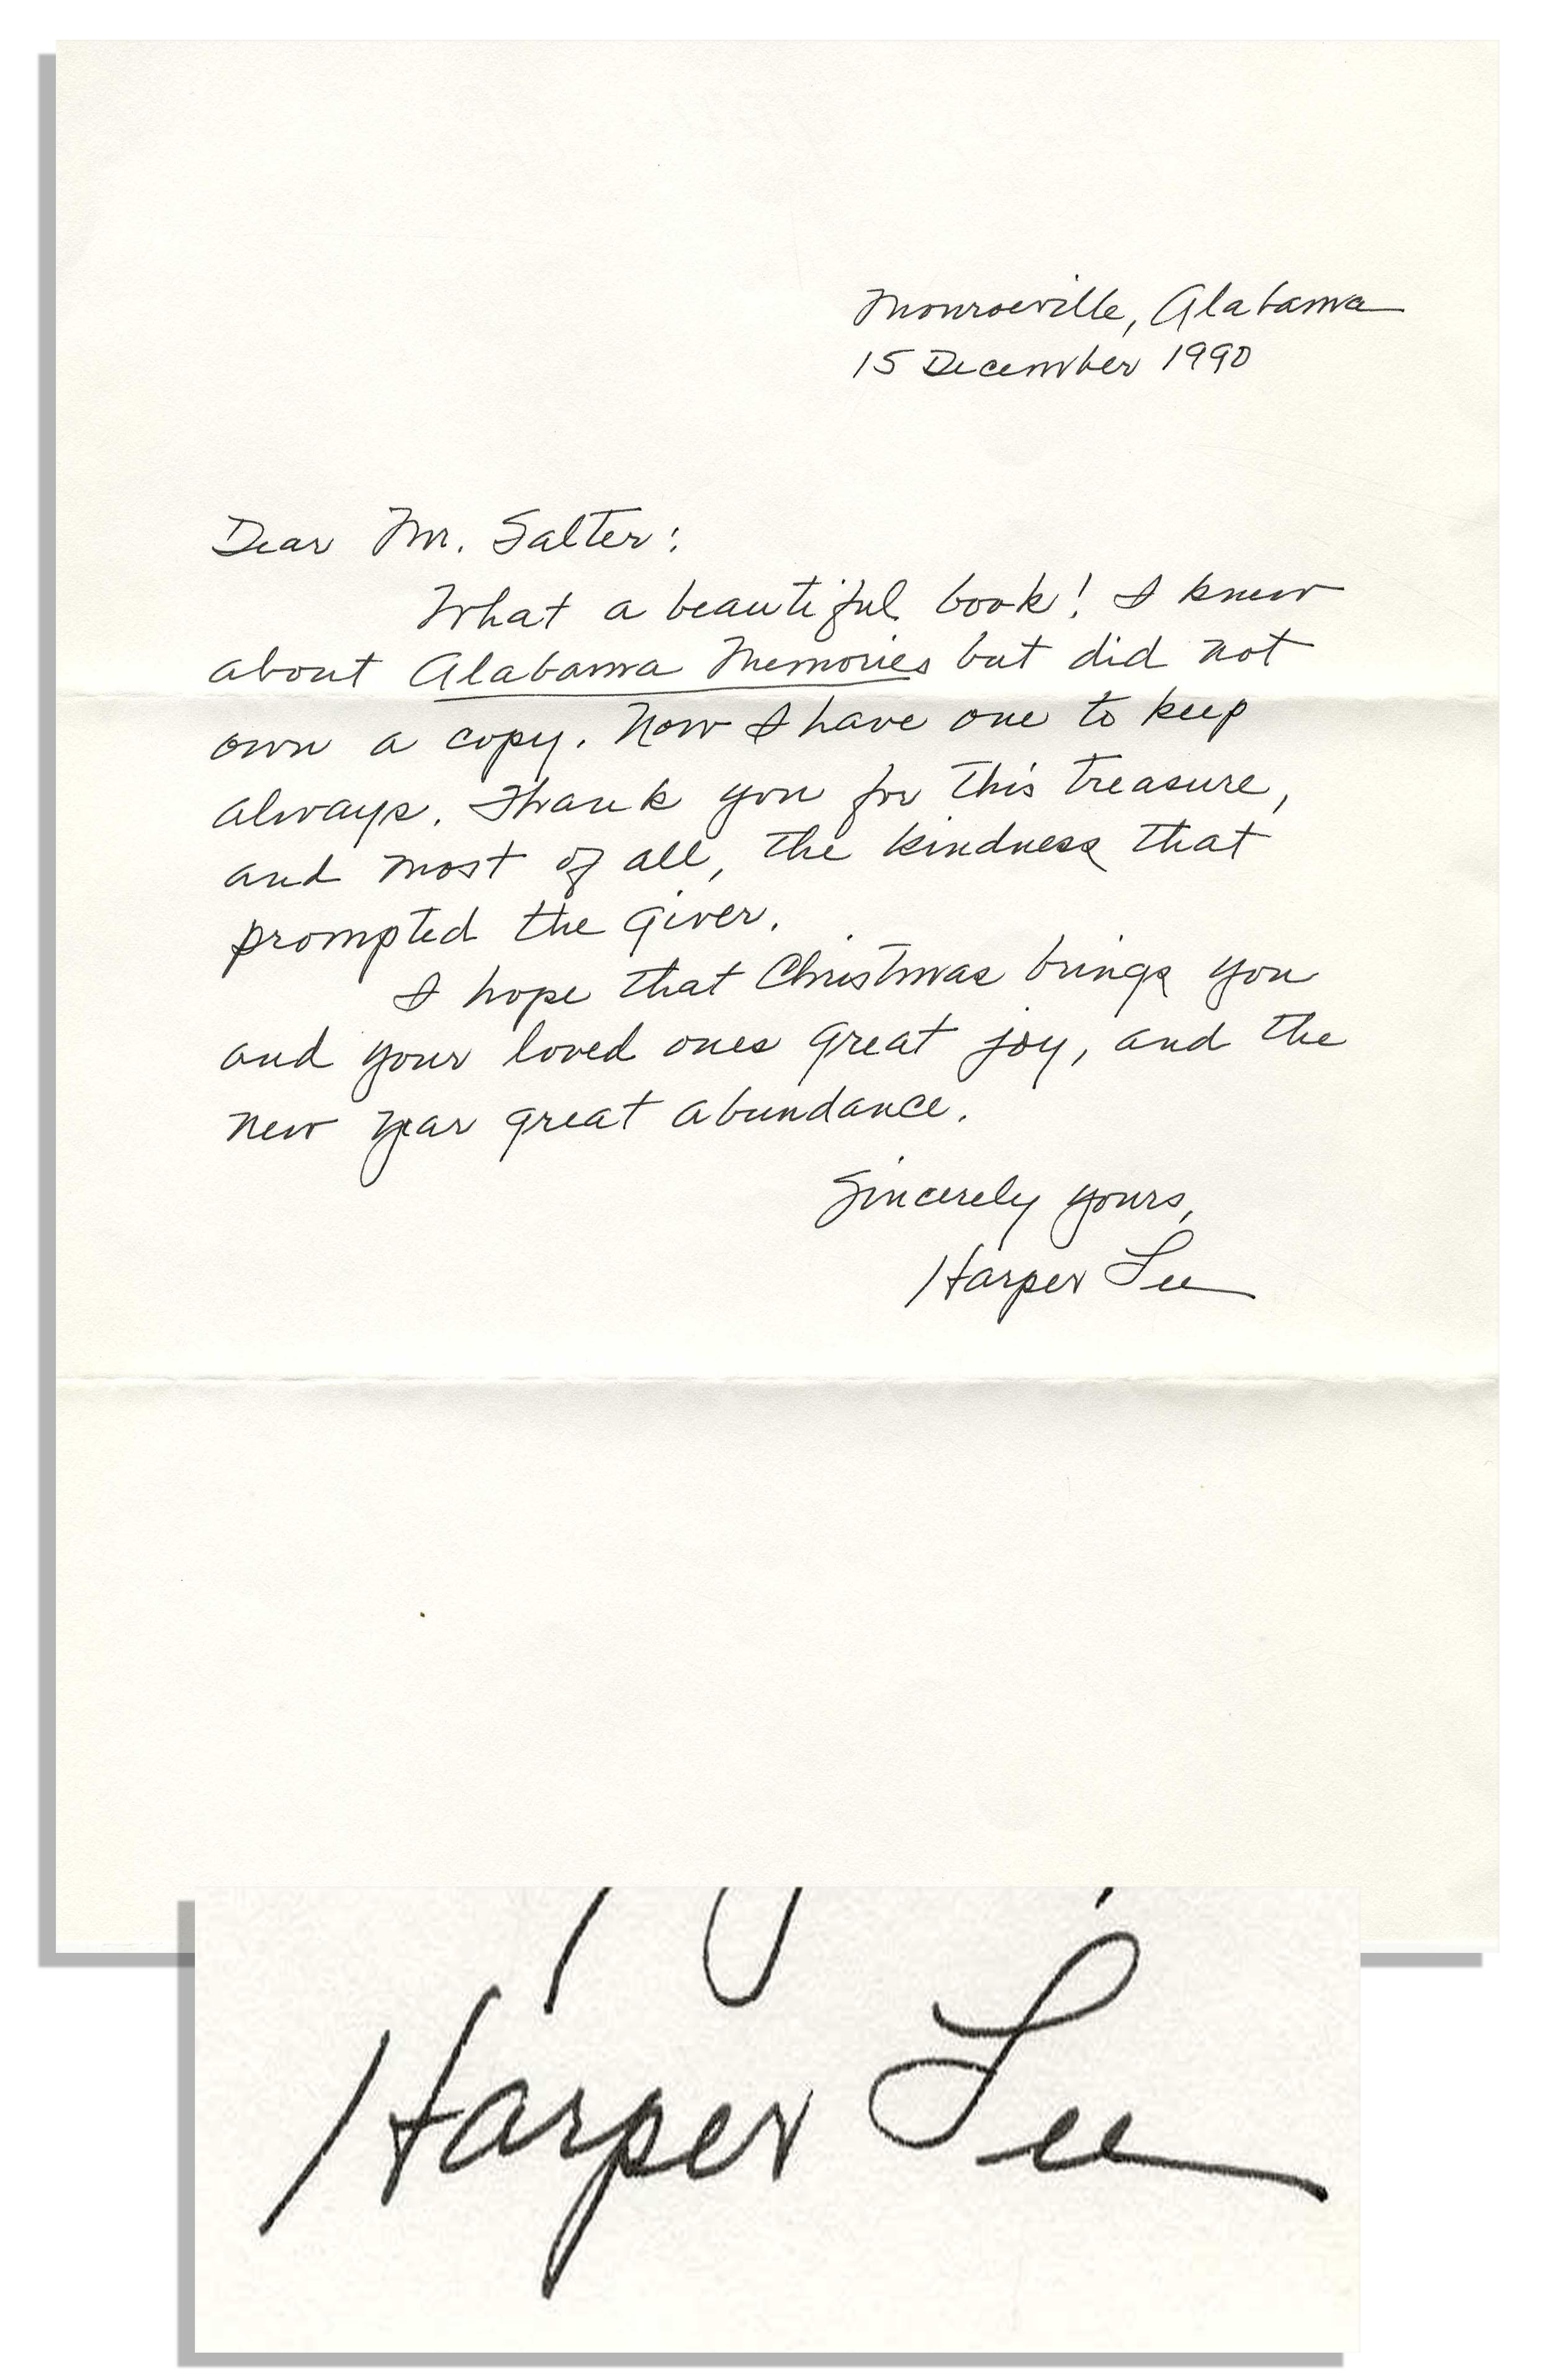 Monroeville, Alabama
15 December 1990
Dear Mr. Salter:
What a beautiful book! I knew
about Alabama Memories but did not
own a copy. Now I have one to keep
always. Thank you for this treasure,
and most of all, the kindness that
prompted the giver.
I hope that Christmas brings you
and your loved ones great joy, and the
new year great abundance.
Sincerely yours,
Harper Lee
Harper Lee